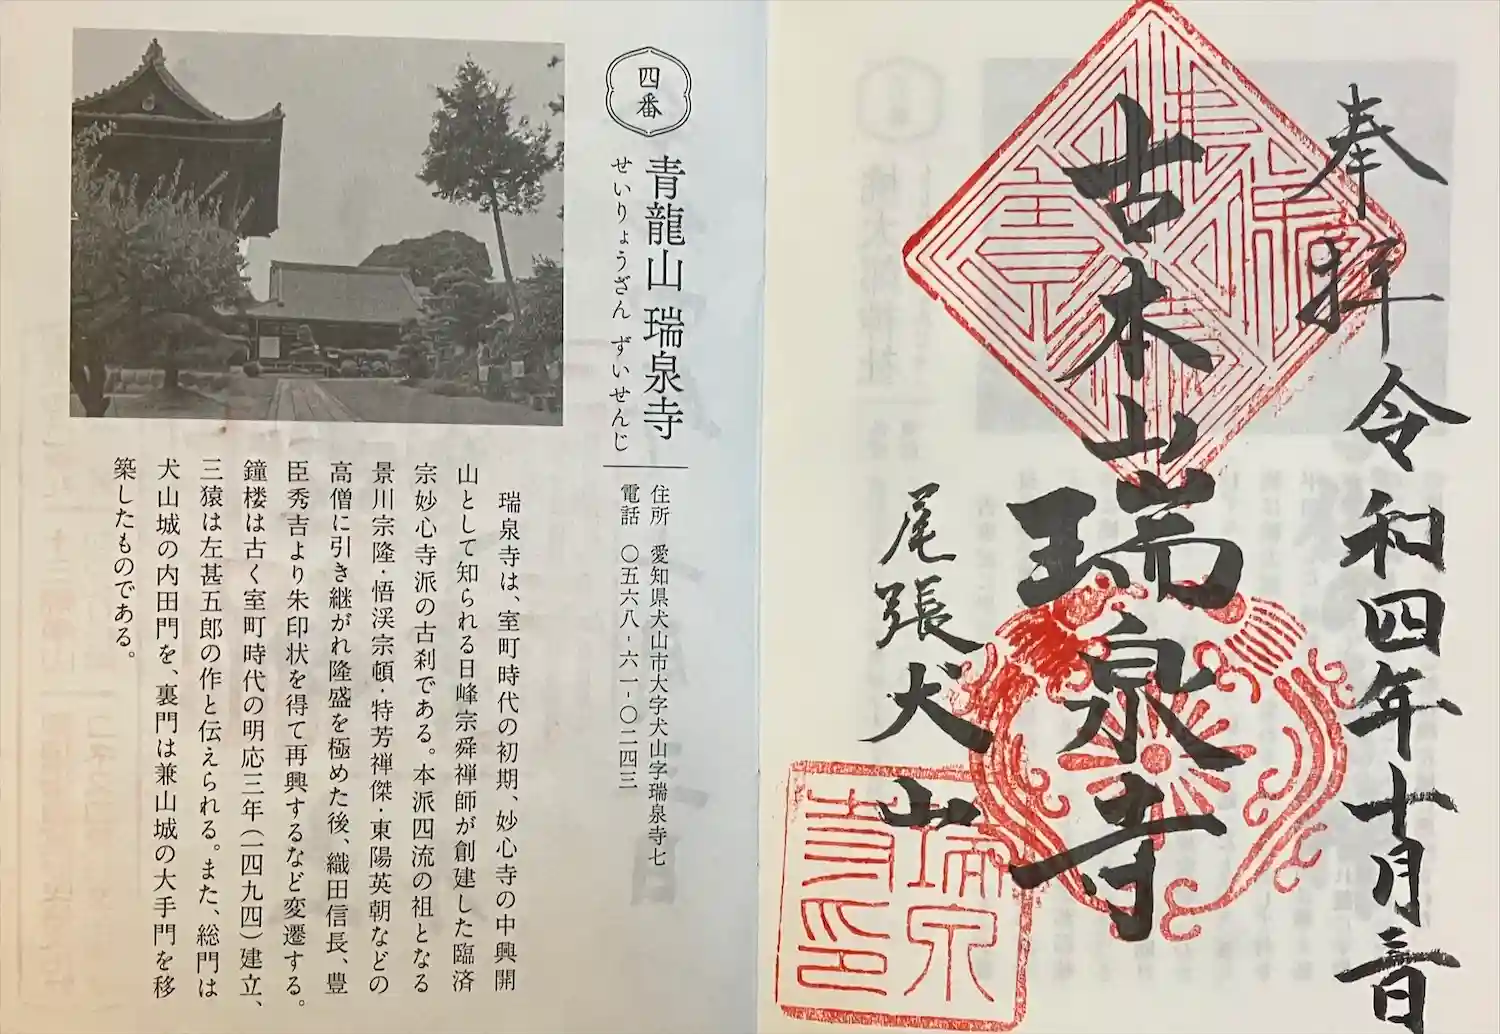 奉拝 令和四年十月三日
古本山 瑞泉寺
尾張犬山
瑞泉寺印
四番
青龍山 瑞泉寺
せいりょうざん ずいせんじ
住所 愛知県犬山市大字犬山字瑞泉寺七
電話 〇五六八-六一-〇二四三
瑞泉寺は、室町時代の初期、妙心寺の中興開
山として知られる日峰宗舜禅師が創建した臨済
宗妙心寺派の古刹である。本派四流の祖となる
景川宗隆・悟渓宗頓・特芳禅傑・東陽英朝などの
高僧に引き継がれ隆盛を極めた後、織田信長、豊
臣秀吉より朱印状を得て再興するなど変遷する。
鐘楼は古く室町時代の明応三年(一四九四)建立、
三猿は左甚五郎の作と伝えられる。また、総門は
犬山城の内田門を、裏門は兼山城の大手門を移
築したものである。